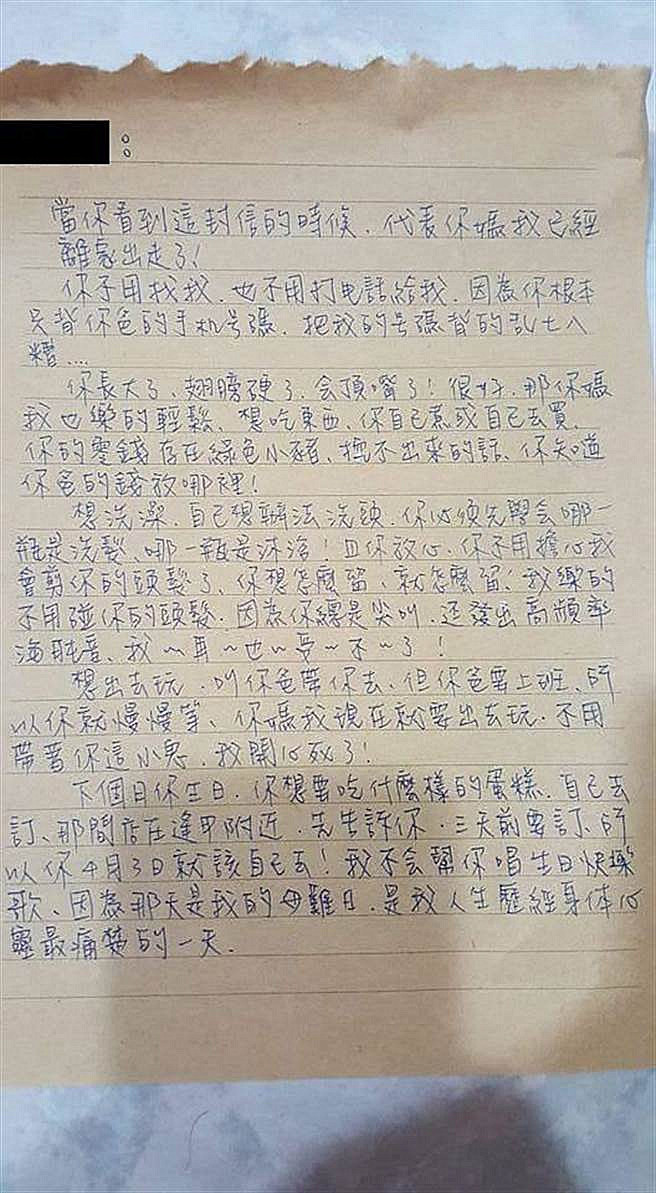 :
當你看到這封信的時候.代表你媽我已經
離家出走了!
你不用找我.也不用打电話給我.因為你根本
只背你爸的手机号碼.把我的号碼背的乱七八
糟....
你長大了、翅膀硬了.会頂嘴了!很好.那你媽
我也樂的輕鬆、想吃東西、你自己煮或自己去買.
你的零錢存在綠色小豬、挖不出來的話、你知道
你爸的錢放哪裡!
想洗澡.自己想辦法洗頭.你必須先學会哪一
瓶是洗髮、哪一瓶是沐浴!且你放心.你不用擔心我
會剪你的頭髮了、你想怎麼留、就怎麼留!我樂的
不用碰你的頭髮.因為你總是尖叫.还發出高頻率
海豚音、我~耳~也~受~不~了!
想出去玩.叫你爸帶你去.但你爸要上班、所
以你就慢慢等、你媽我現在就要出去玩.不用
帶著你這小鬼.我開心死了!
下個月你生日.你想要吃什麼樣的蛋糕.自己去
訂、那間店在逢甲附近.先告訴你.三天前要訂、所
以你4月3日就該自己去!我不会幫你唱生日快樂
歌、因為那天是我的母難日.是我人生歷經身体心
靈最痛楚的一天.